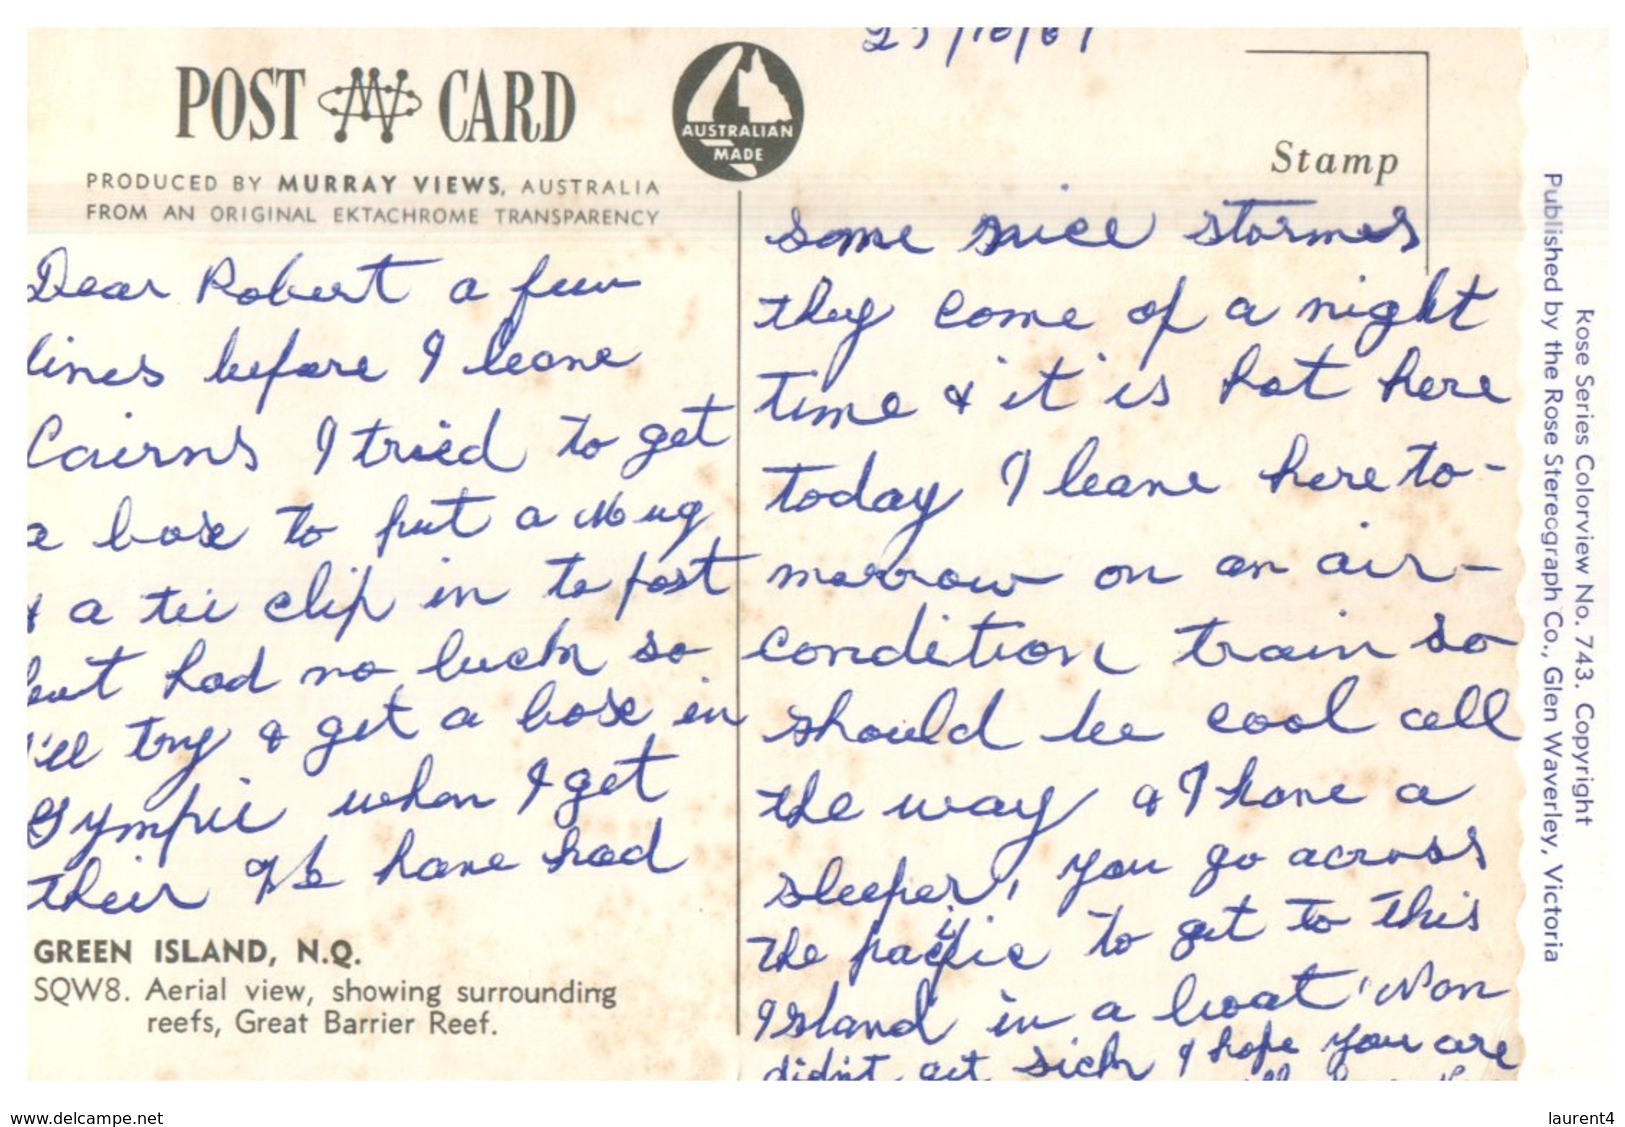 POST CARD
PRODUCED BY MURRAY VIEWS, AUSTRALIA
FROM AN ORIGINAL EKTACHROME TRANSPARENCY
AUSTRALIAN
MADE
Stamp
Dear Robert a few
lines before I leave
Cairns I tried to get
a box to put a Mug
& a tie clip in to post
but had no luck so
I'll try & get a box in
Gympie when I get
their We have had
some nice stormes
they come of a night
time & it is hot here
today I leave here to-
morrow on an air-
condition train so
should be cool all
the way & I have a
sleeper, you go across
the pacific to get to this
Island in a boat Mon
didn't get sick I hope you are
GREEN ISLAND, N.Q.
SQW8. Aerial view, showing surrounding
reefs, Great Barrier Reef.
Rose Series Colorview No. 743. Copyright
Published by the Rose Stereograph Co., Glen Waverley, Victoria
www.delcampe.net
laurent4